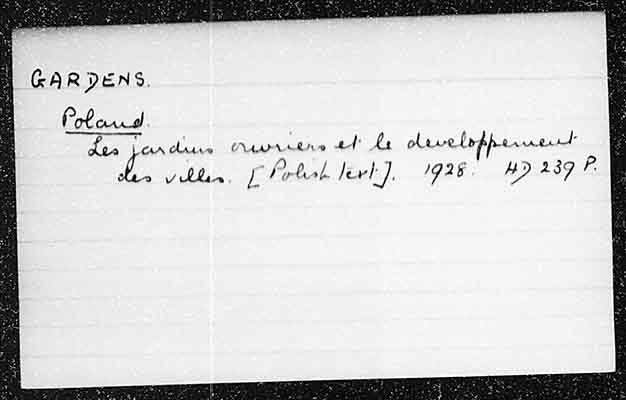 GARDENS.
Poland.
Les jardins ouvriers et le developpement
des villes. [Polish text]. 1928. HD 239 P.